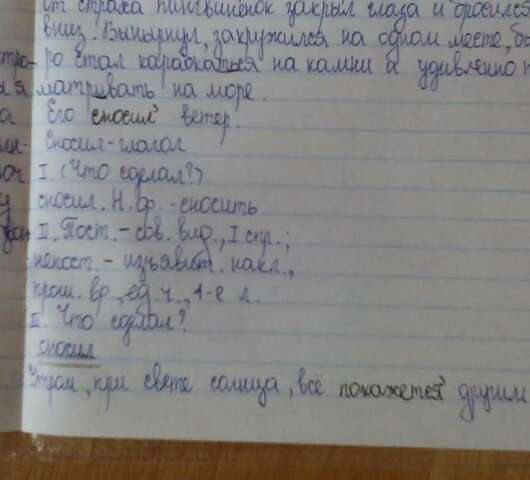 от страха пингвинёнок закрыл глаза и бросился
вниз. Вынырнул, закружился на одном месте, бы
стро- ро стал карабкаться на камни и удивленно п
матривать на море.
а Его сносил³ ветер.
Сносил-глагол
I. (Что сделал?)
у сносил. Н. ф. - сносить
II. Пост. - сов. вид., I спр.;
непост. - изъявит. накл.,
прош. вр., ед. ч., 1-е л.
III. Что сделал?
сносил
Утром, при свете солнца, всё покажется³ другим